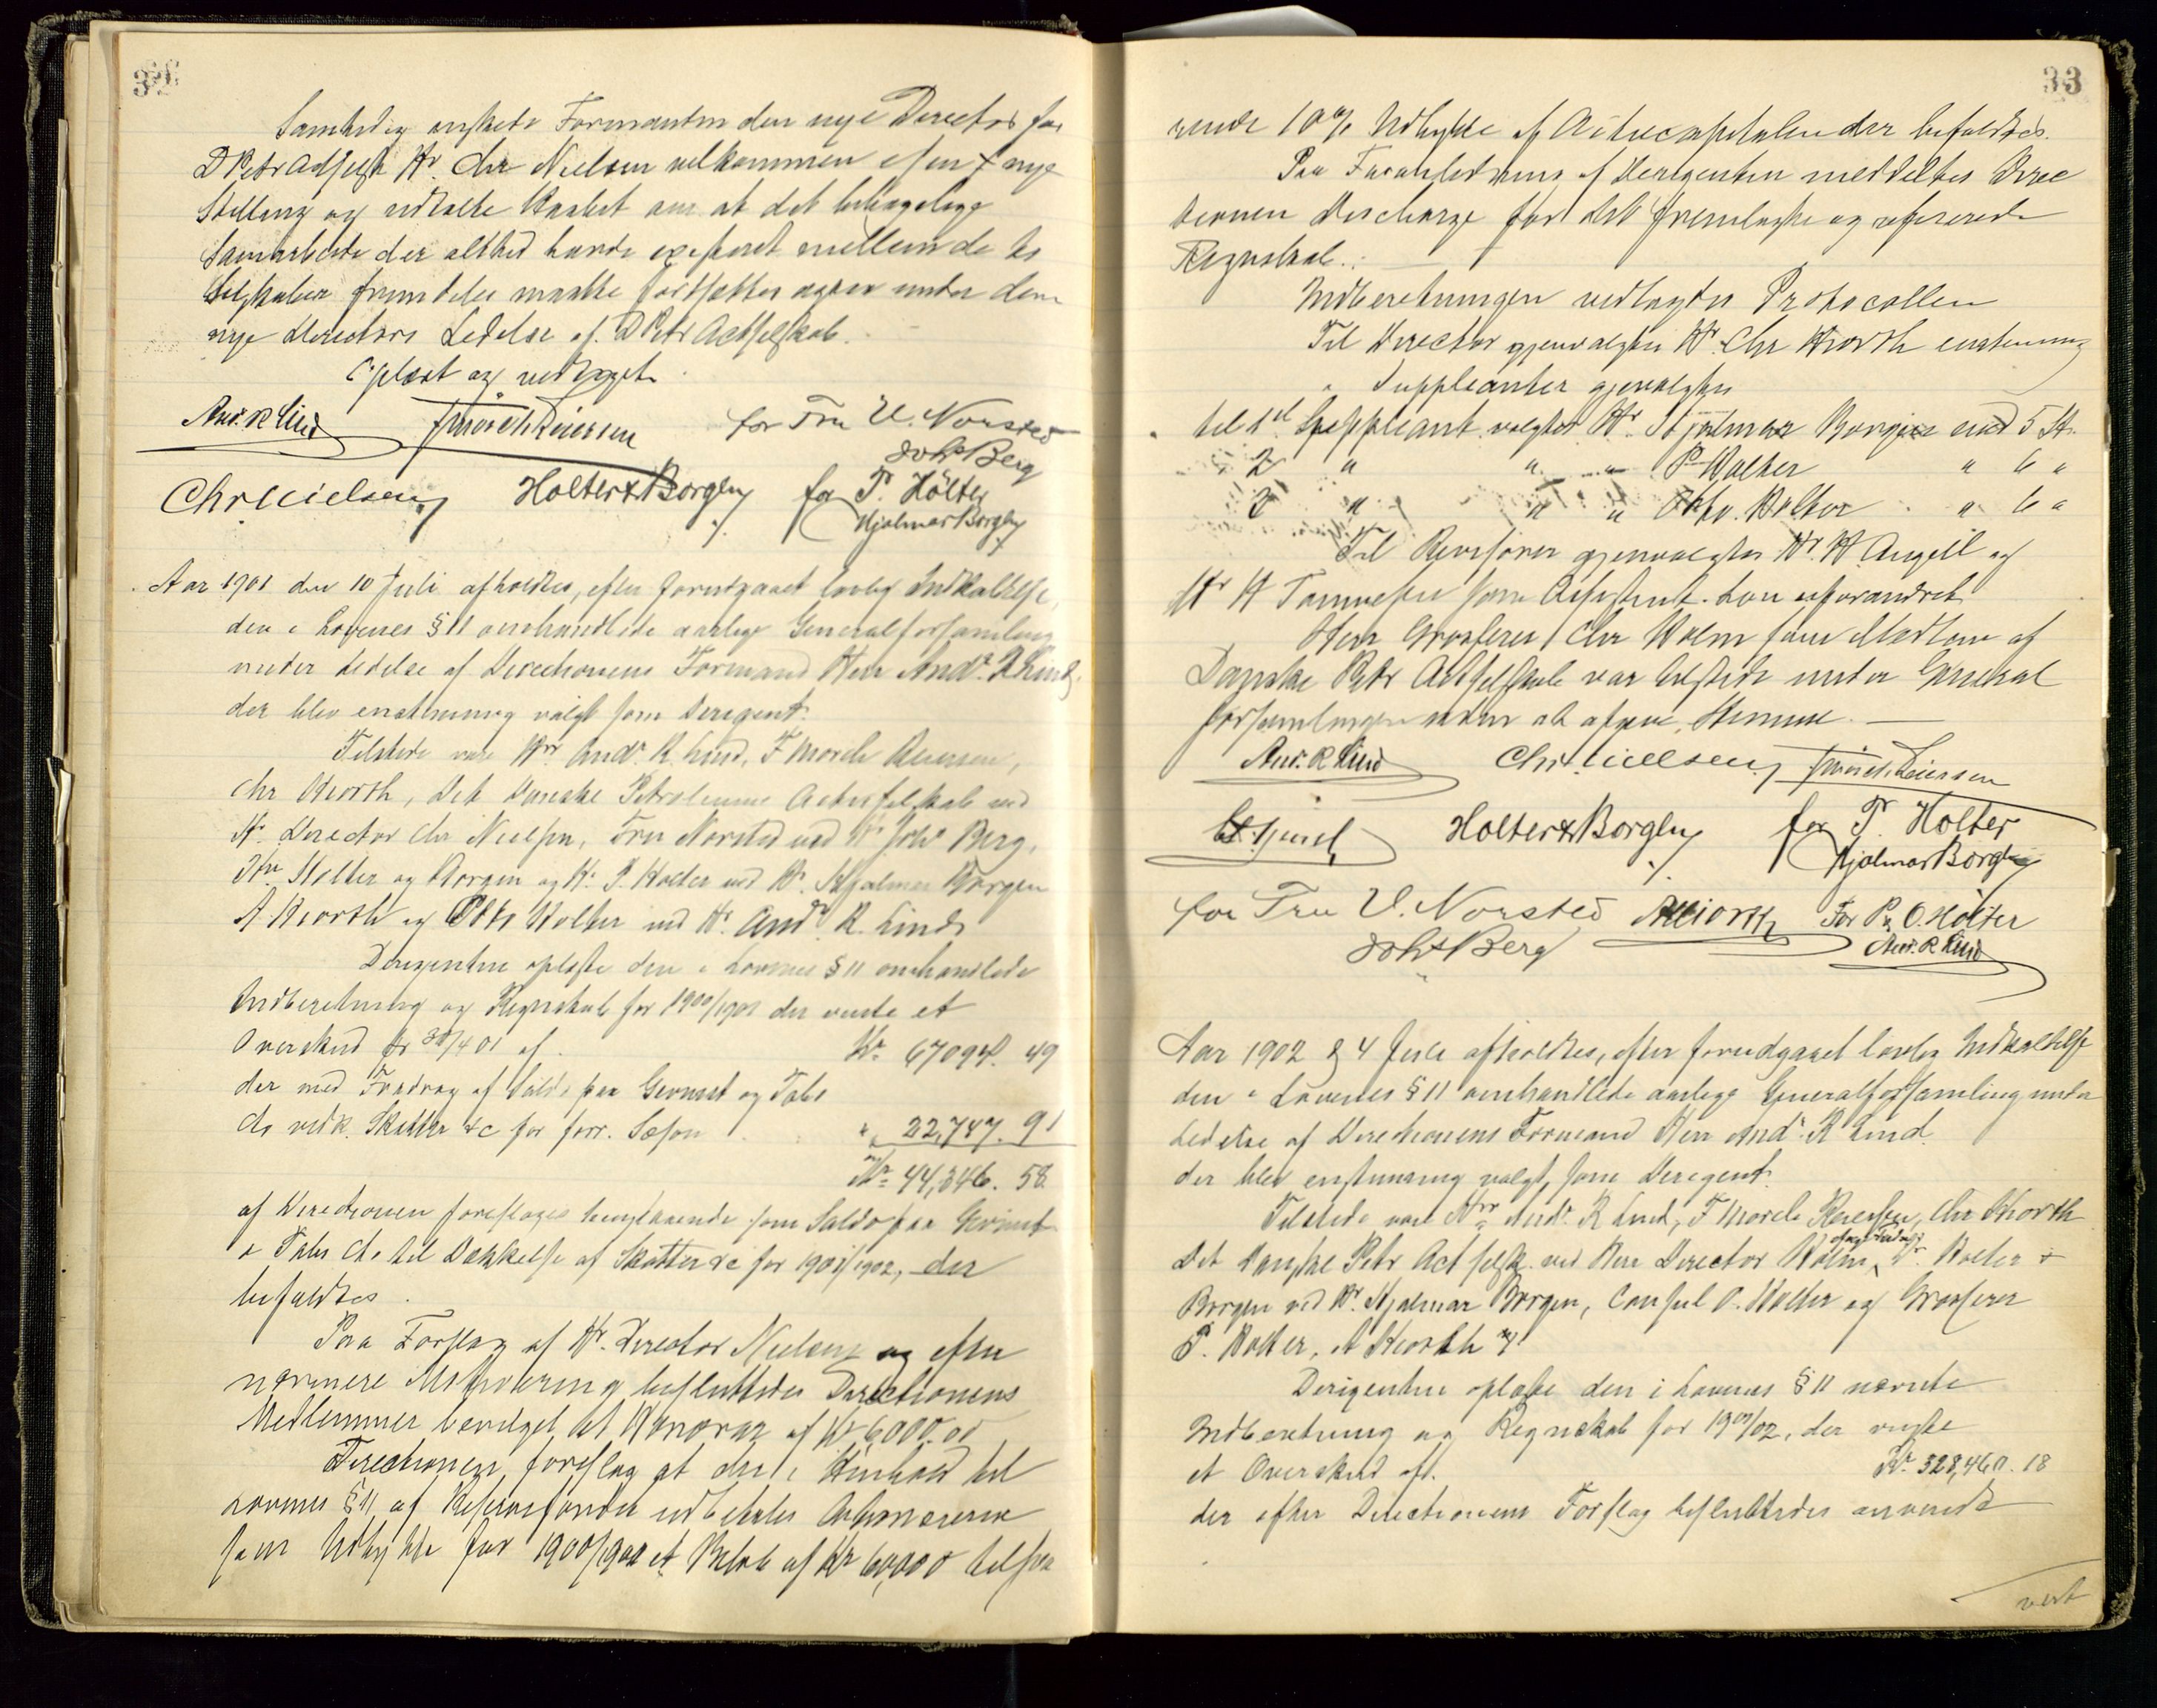 32
Samtidig ønskede Formanden den nye Director for
D Petr Actselsk Hr. Chr Nielsen velkommen i sin nye
Stilling og udtalte Haabet om at det behagelige
Samarbeide der altid havde existeret mellem de to
Selskaber fremdeles maatte fortsættes ogsaa under den
nye Directørs Ledelse af D Petr Actselskab.
Oplæst og vedtaget.
And. R Lind F Morch Reiersen for Fru U. Norsted
Joh Berg
Chr Nielsen Holter & Borgen for P. Holter
Hjalmar Borgen
Aar 1901 den 10 Juli afholdtes, efter forudgaaet lovlig Indkaldelse,
den i Lovenes § 11 omhandlede aarlige Generalforsamling
under Ledelse af Directionens Formand Herr Andr. R Lind,
der blev enstemmig valgt som Dirigent.
Tilstede var Hrr Andr. R. Lind, F Morch Reiersen,
Chr Hiorth, Det Danske Petroleums Actieselskab ved
Hr. Director Chr Nielsen, Fru Norsted ved Hr Joh Berg,
Hrr Holter og Borgen og Hr. P. Holter ved Hr. Hjalmar Borgen
A Hiorth og Otto Holter ved Hr. Andr. R. Lind
Dirigenten oplæste den i Lovenes § 11 omhandlede
Indberetning og Regnskab for 1900/1901 der viste et
Overskud pr 30/4 01 af Kr. 67094. 49
der med Fradrag af Saldo paa Gevinst og Tabs
Cto vedk. Skatter &c for forr. Sæson " 22,747. 91
Kr. 44,346. 58
af Directionen foresloges henstaaende som Saldo paa Gevinst
& Tabs Cto til Dækkelse af Skatter &c for 1901/1902, der
bifaldtes.
Paa Forslag af Hr. Director Nielsen og efter
nærmere Motivering besluttedes Directionens
Medlemmer bevilget et Honorar af Kr 6,000.00
Directionen foreslog at der i Henhold til
Lovenes § 11, af Reservefondet udbetales Actionærerne
som Udbytte for 1900/1901 et Beløb af Kr 60,000 tilsva
33
rende 10% Udbytte af Actiecapitalen der bifaldtes.
Paa Foranledning af Dirigenten meddeltes Direc
tionen Decharge for det fremlagte og refererede
Regnskab.
Indberetningen vedlagdes Protocollen
Til Director gjenvalgtes Hr. Chr Hiorth enstemmig
" Suppleanter gjenvalgtes
til 1ste Suppleant valgtes Hr. Hjalmar Borgen med 5 St.
" 2 " " " P Holter " 6 "
3 " " " Otto. Holter " 6 "
Til Revisorer gjenvalgtes Hr. H. Angell og
Hr H Tønnesen som Assistent. Løn uforandret
Herr Grosserer Chr Holm som Medlem af
Danske Petr Actselskab var tilstede under General
forsamlingen uden at afgive Stemme.
And. R Lind Chr. Nielsen F Morch Reiersen
Holter & Borgen for P. Holter
Hjalmar Borgen
for Fru U. Norsted A Hiorth For P. O. Holter
Joh Berg And. R Lind
Aar 1902 d 4 Juli afholdtes, efter forudgaaet lovlig Indkaldelse
den i Lovenes § 11 omhandlede aarlige Generalforsamling under
Ledelse af Directionens Formand Herr Andr. R Lind
der blev enstemmig valgt som Dirigent.
Tilstede var Hrr Andr. R Lind, F Morch Reiersen, Chr Hiorth
Det Danske Petr Actselsk. ved Herr Director Holm, Holter &
Borgen ved Hr. Hjalmar Borgen, Consul O. Holter og Grosserer
P. Holter, A Hiorth
Dirigenten oplæste den i Lovenes § 11 nævnte
Indberetning og Regnskab for 1901/02, der viste
et Overskud af Kr. 328,460. 18
der efter Directionens Forslag besluttedes anvendt
vert